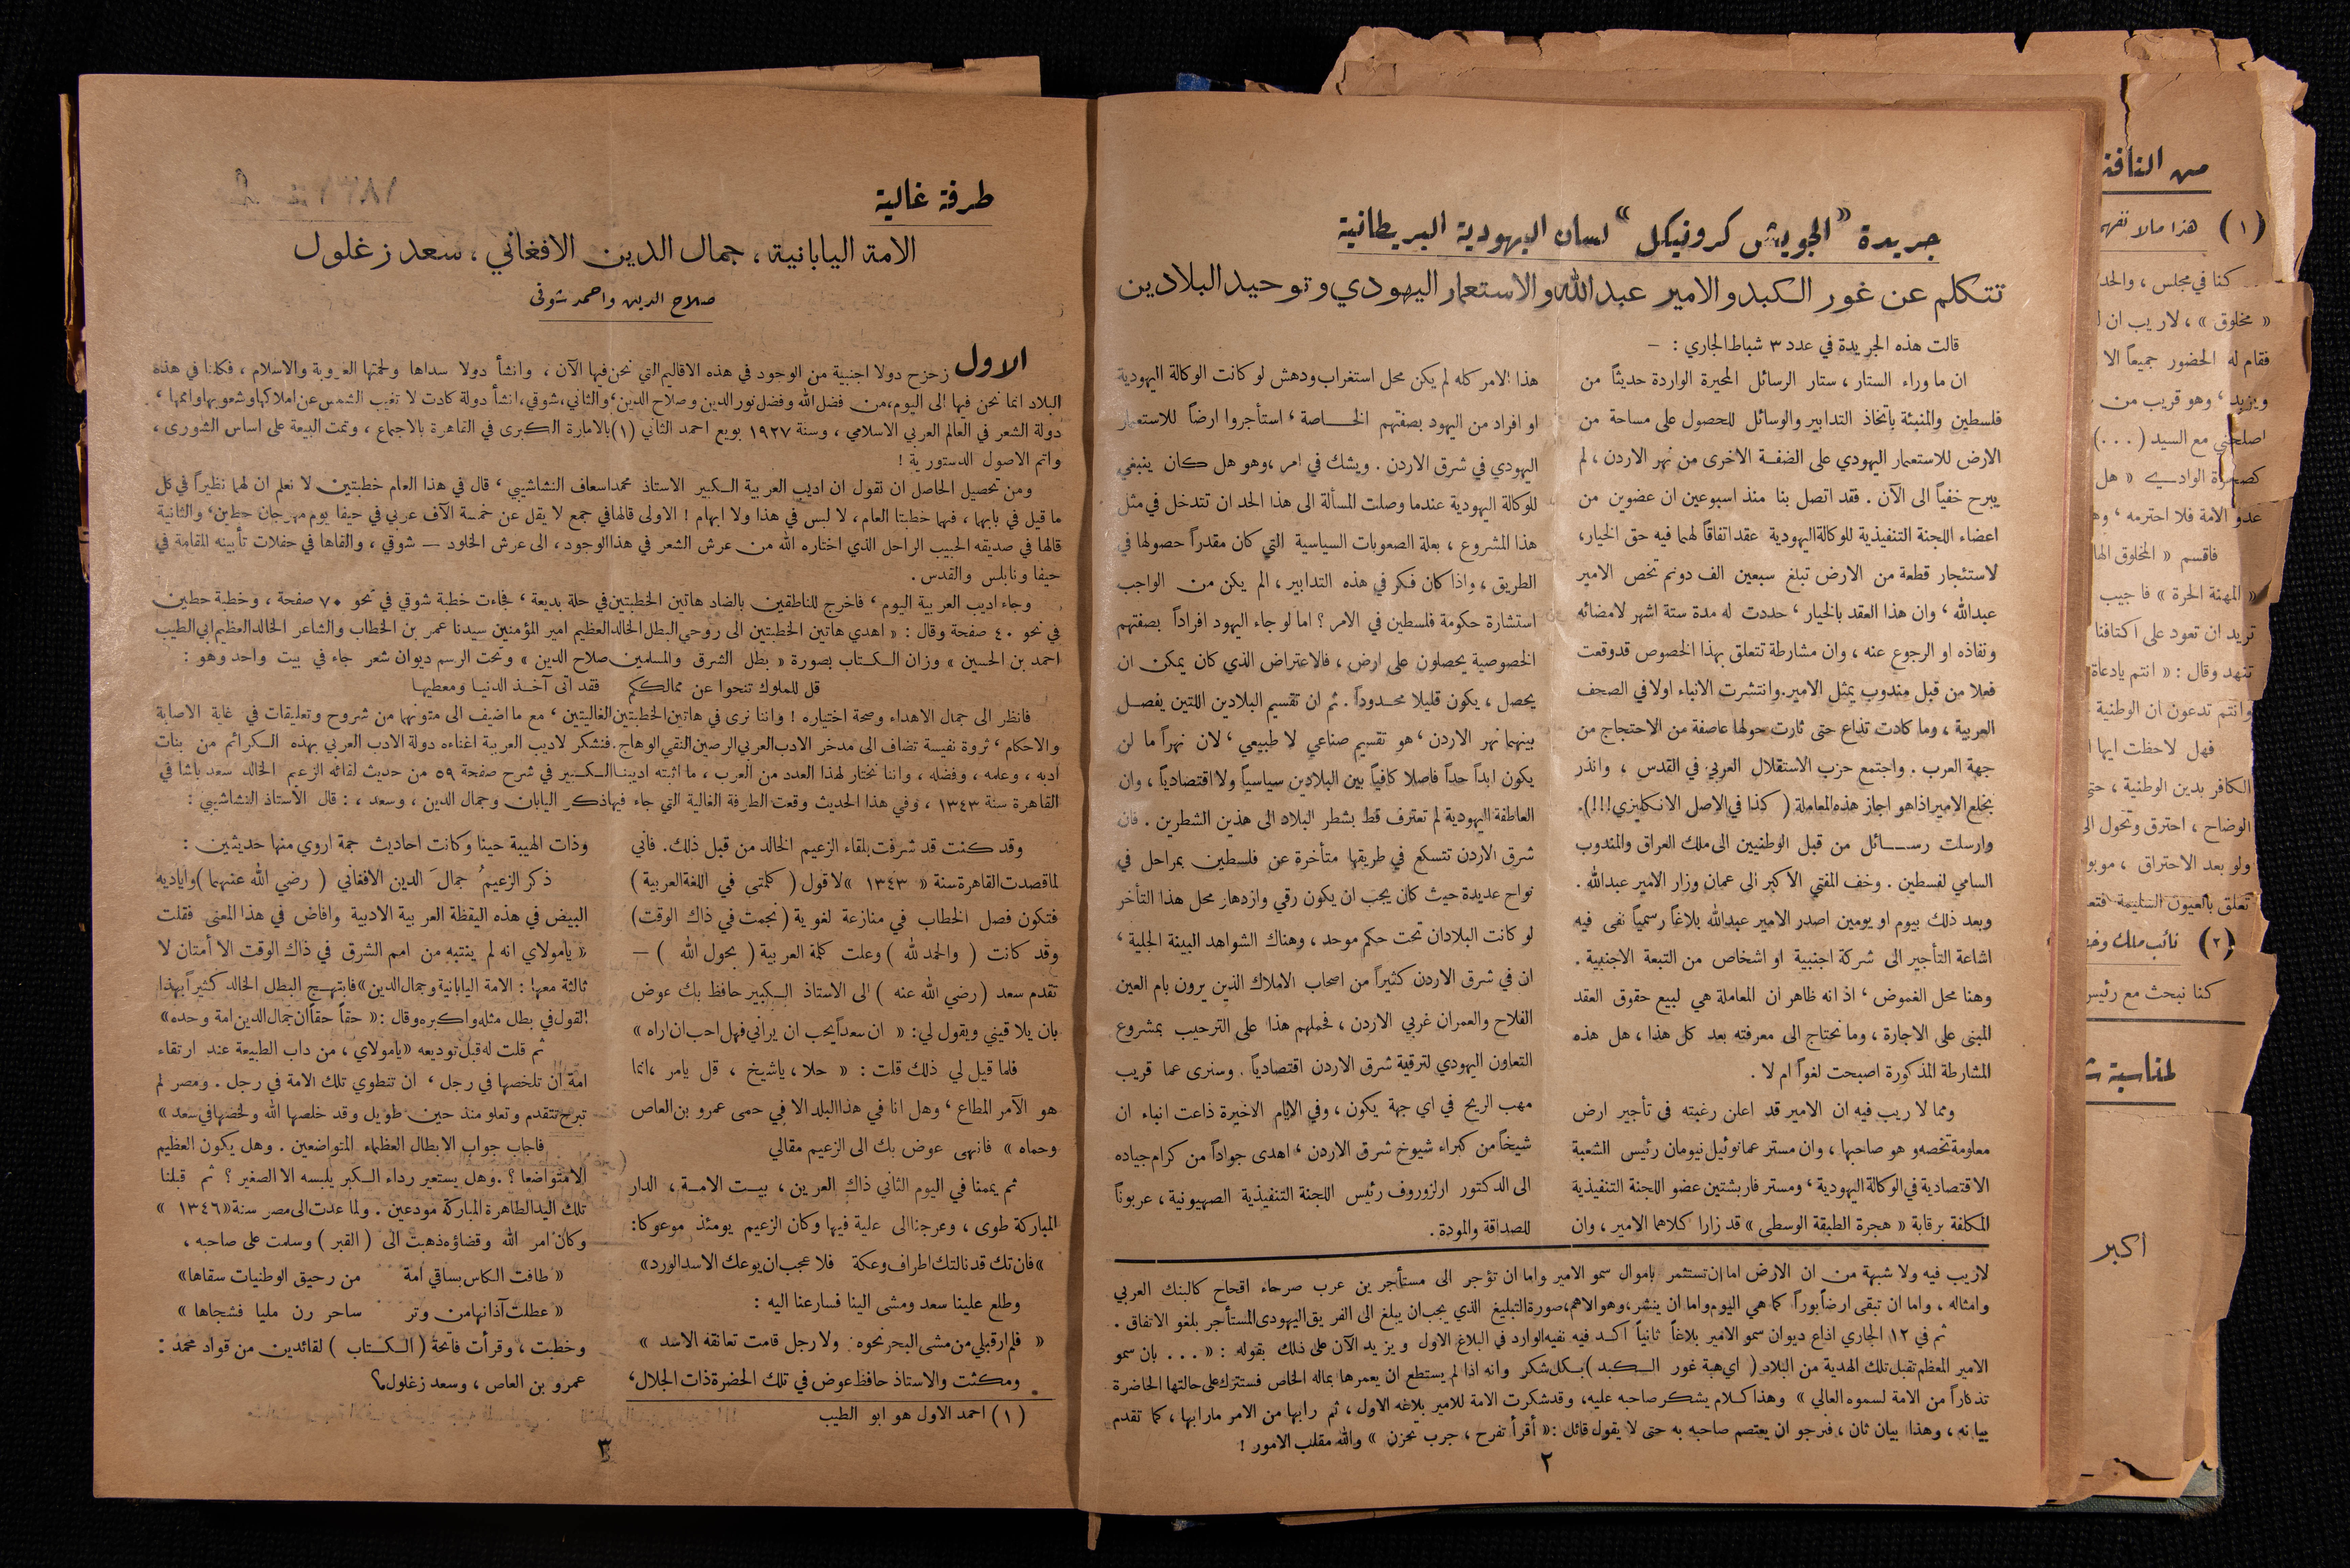 جريدة «الجويش كرونيكل» لسان اليهودية البريطانية
تتكلم عن غور الكبد والامير عبدالله والاستعمار اليهودي وتوحيد البلادين
قالت هذه الجريدة في عدد ٣ شباط الجاري : —
ان ما وراء الستار ، ستار الرسائل المحيرة الواردة حديثاً من
فلسطين والمنبئة باتخاذ التدابير والوسائل للحصول على مساحة من
الارض للاستعمار اليهودي على الضفة الاخرى من نهر الاردن ، لم
يبرح خفياً الى الآن . فقد اتصل بنا منذ اسبوعين ان عضوين من
اعضاء اللجنة التنفيذية للوكالة اليهودية عقد اتفاقاً لهما فيه حق الخيار،
لاستئجار قطعة من الارض تبلغ سبعين الف دونم تخص الامير
عبدالله ، وان هذا العقد بالخيار ، حددت له مدة ستة اشهر لامضائه
ونفاذه او الرجوع عنه ، وان مشارطة تتعلق بهذا الخصوص قد وقعت
فعلا من قبل مندوب يمثل الامير. وانتشرت الانباء اولا في الصحف
العربية ، وما كادت تذاع حتى ثارت حولها عاصفة من الاحتجاج من
جهة العرب . واجتمع حزب الاستقلال العربي في القدس ، وانذر
بخلع الامير اذا هو اجاز هذه المعاملة ( كذا في الاصل الانكليزي !!!).
وارسلت رسائل من قبل الوطنيين الى ملك العراق والمندوب
السامي لفسطين . وخف المفتي الاكبر الى عمان وزار الامير عبدالله .
وبعد ذلك بيوم او يومين اصدر الامير عبدالله بلاغاً رسمياً نفى فيه
اشاعة التأجير الى شركة اجنبية او اشخاص من التبعة الاجنبية .
وهنا محل الغموض ، اذ انه ظاهر ان المعاملة هي لبيع حقوق العقد
المبنى على الاجارة ، وما نحتاج الى معرفته بعد كل هذا ، هل هذه
المشارطة المذكورة اصبحت لغواً ام لا .
ومما لا ريب فيه ان الامير قد اعلن رغبته في تأجير ارض
معلومة تخصه و هو صاحبها ، وان مستر عمانوئيل نيومان رئيس الشعبة
الاقتصادية في الوكالة اليهودية ، ومستر فاربشتين عضو اللجنة التنفيذية
المكلفة برقابة « هجرة الطبقة الوسطى » قد زارا كلاهما الامير ، وان
هذا الامر كله لم يكن محل استغراب ودهش لو كانت الوكالة اليهودية
او افراد من اليهود بصفتهم الخاصة ، استأجروا ارضاً للاستعمار
اليهودي في شرق الاردن . ويشك في امر ، وهو هل كان ينبغي
للوكالة اليهودية عندما وصلت المسألة الى هذا الحد ان تتدخل في مثل
هذا المشروع ، بعلة الصعوبات السياسية التي كان مقدراً حصولها في
الطريق ، واذا كان فكر في هذه التدابير ، الم يكن من الواجب
استشارة حكومة فلسطين في الامر ؟ اما لو جاء اليهود افراداً بصفتهم
الخصوصية يحصلون على ارض ، فالاعتراض الذي كان يمكن ان
يحصل ، يكون قليلا محدوداً . ثم ان تقسيم البلادين اللتين يفصل
بينهما نهر الاردن ، هو تقسيم صناعي لا طبيعي ، لان نهراً ما لن
يكون ابداً حداً فاصلا كافياً بين البلادين سياسياً ولا اقتصادياً ، وان
العاطفة اليهودية لم تعترف قط بشطر البلاد الى هذين الشطرين . فان
شرق الاردن تتسكع في طريقها متأخرة عن فلسطين بمراحل في
نواح عديدة حيث كان يجب ان يكون رقي وازدهار محل هذا التأخر
لو كانت البلادان تحت حكم موحد ، وهناك الشواهد البينة الجلية ،
ان في شرق الاردن كثيراً من اصحاب الاملاك الذين يرون بام العين
الفلاح والعمران غربي الاردن ، فحملهم هذا على الترحيب بمشروع
التعاون اليهودي لترقية شرق الاردن اقتصادياً . وسنرى عما قريب
مهب الريح في اي جهة يكون ، وفي الايام الاخيرة ذاعت انباء ان
شيخاً من كبراء شيوخ شرق الاردن ، اهدى جواداً من كرام جياده
الى الدكتور ارلزوروف رئيس اللجنة التنفيذية الصهيونية ، عربوناً
للصداقة والمودة .
لاريب فيه ولا شبهة من ان الارض اما ان تستثمر باموال سمو الامير واما ان تؤجر الى مستأجرين عرب صرحاء اقحاح كالبنك العربي
وامثاله ، واما ان تبقى ارضاً بوراً كما هي اليوم واما ان ينشر، وهو الاهم، صورة التبليغ الذي يجب ان يبلغ الى الفريق اليهودى المستأجر بلغو الاتفاق .
ثم في ١٢ الجاري اذاع ديوان سمو الامير بلاغاً ثانياً اكد فيه نفيه الوارد في البلاغ الاول ويزيد الآن على ذلك بقوله : « . . . بان سمو
الامير المعظم تقبل تلك الهدية من البلاد ( اي هبة غور الكبد ) بكل شكر وانه اذا لم يستطع ان يعمرها بماله الخاص فستترك على حالتها الحاضرة
تذكاراً من الامة لسموه العالي » وهذا كلام يشكر صاحبه عليه، وقد شكرت الامة للامير بلاغه الاول ، ثم رابها من الامر مارابها ، كما تقدم
بيانه ، وهذا بيان ثان ، فنرجو ان يعتصم صاحبه به حتى لا يقول قائل : « أقرأ تفرح ، جرب تحزن » والله مقلب الامور !
٢
طرفة غالية
الامة اليابانية ، جمال الدين الافغاني ، سعد زغلول
صلاح الدين واحمد شوقي
الاول زحزح دولا اجنبية من الوجود في هذه الاقاليم التي نحن فيها الآن ، وانشأ دولا سداها ولحمتها العروبة والاسلام ، فكلنا في هذه
البلاد انما نحن فيها الى اليوم، من فضل الله وفضل نور الدين وصلاح الدين، والثاني، شوقي، انشأ دولة كادت لا تغيب الشمس عن املاكها وشعوبها وانمها ،
دولة الشعر في العالم العربي الاسلامي ، وسنة ١٩٢٧ بويع احمد الثاني (١) بالامارة الكبرى في القاهرة بالاجماع ، وتمت البيعة على اساس الشورى ،
واتم الاصول الدستورية !
ومن تحصيل الحاصل ان نقول ان اديب العربية الكبير الاستاذ محمد اسعاف النشاشيبي ، قال في هذا العام خطبتين لا نعلم ان لهما نظيراً في كل
ما قيل في بابهما ، فهما خطبتا العام، لا لبس في هذا ولا ابهام ! الاولى قالها في جمع لا يقل عن خمسة الآف عربي في حيفا يوم مهرجان حطين، والثانية
قالها في صديقه الحبيب الراحل الذي اختاره الله من عرش الشعر في هذا الوجود ، الى عرش الخلود — شوقي ، والقاها في حفلات تأبينه المقامة في
حيفا ونابلس والقدس .
وجاء اديب العربية اليوم ، فاخرج للناطقين بالضاد هاتين الخطبتين في حلة بديعة ، فجاءت خطبة شوقي في نحو ٧٠ صفحة ، وخطبة حطين
في نحو ٤٠ صفحة وقال : « اهدي هاتين الخطبتين الى روحي البطل الخالد العظيم امير المؤمنين سيدنا عمر بن الخطاب والشاعر الخالد العظيم ابي الطيب
احمد بن الحسين » وزان الكتاب بصورة « بطل الشرق والمسلمين صلاح الدين » وتحت الرسم ديوان شعر جاء في بيت واحد وهو :
قل للملوك تنحوا عن ممالككم فقد اتى آخذ الدنيا ومعطيها
فانظر الى جمال الاهداء وصحة اختياره ! واننا نرى في هاتين الخطبتين الغاليتين ، مع ما اضيف الى متونهما من شروح وتعليقات في غاية الاصابة
والاحكام ، ثروة نفيسة تضاف الى مدخر الادب العربي الرصين النقي الوهاج. فنشكر لاديب العربية اغناءه دولة الادب العربي بهذه الكرائم من بنات
ادبه ، وعلمه ، وفضله ، واننا نختار لهذا العدد من العرب ، ما اثبته اديبنا الكبير في شرح صفحة ٥٩ من حديث لقائه الزعيم الخالد سعد باشا في
القاهرة سنة ١٣٤٣ ، وفي هذا الحديث وقعت الطرفة الغالية التي جاء فيها ذكر اليابان وجمال الدين ، وسعد ، : قال الاستاذ النشاشيبي :
وقد كنت قد شرفت بلقاء الزعيم الخالد من قبل ذلك. فاني
لما قصدت القاهرة سنة « ١٣٤٣ » لاقول ( كلمتى في اللغة العربية )
فتكون فصل الخطاب في منازعة لغوية ( نجمت في ذاك الوقت )
وقد كانت ( والحمد لله ) وعلت كلمة العربية ( بحول الله ) —
تقدم سعد ( رضي الله عنه ) الى الاستاذ الكبير حافظ بك عوض
بان يلاقيني ويقول لي : « ان سعداً يحب ان يراني فهل احب ان اراه »
فلما قيل لي ذلك قلت : « حلا ، ياشيخ ، قل يامر ، انما
هو الآمر المطاع ، وهل انا في هذا البلد الا في حمى عمرو بن العاص
وحماه » فانهى عوض بك الى الزعيم مقالي
ثم يممنا في اليوم الثاني ذاك العرين ، بيت الامة ، الدار
المباركة طوى ، وعرجنا الى علية فيها وكان الزعيم يومئذ موعوكا :
« فان تك قد نالتك اطراف وعكة فلا عجب ان يوعك الاسد الورد »
وطلع علينا سعد ومشى الينا فسارعنا اليه :
« فلم ار قبلي من مشى البحر نحوه ولا رجل قامت تعانقه الاسد »
ومكثت والاستاذ حافظ عوض في تلك الحضرة ذات الجلال،
(١) احمد الاول هو ابو الطيب
وذات الهيبة حينا وكانت احاديث جمة اروي منها حديثين :
ذكر الزعيمُ جمالَ الدين الافغاني ( رضي الله عنهما ) واياديه
البيض في هذه اليقظة العربية الادبية وافاض في هذا المعنى فقلت
« يامولاي انه لم ينتبه من امم الشرق في ذاك الوقت الا أمتان لا
ثالثة معها : الامة اليابانية وجمال الدين » فابتهج البطل الخالد كثيراً بهذا
القول في بطل مثله واكبره وقال : « حقاً حقاً ان جمال الدين امة وحده »
ثم قلت له قبل توديعه « يامولاي ، من داب الطبيعة عند ارتقاء
امة ان تلخصها في رجل ، ان تنطوي تلك الامة في رجل . ومصر لم
تبرح تتقدم وتعلو منذ حين طويل وقد خلصها الله ولخصها في سعد »
فاجاب جواب الابطال العظماء المتواضعين . وهل يكون العظيم
الا متواضعا ؟ . وهل يستعير رداء الكبر يلبسه الا الصغير ؟ ثم قبلنا
تلك اليد الطاهرة المباركة مودعين . ولما عدت الى مصر سنة « ١٣٤٦ »
وكان امر الله وقضاؤه ذهبت الى ( القبر ) وسلمت على صاحبه ،
« طافت الكاس بساقي امة من رحيق الوطنيات سقاها »
« عطلت آذانها من وتر ساحر رن مليا فشجاها »
وخطبت ، وقرأت فاتحة ( الكتاب ) لقائدين من قواد محمد :
عمرو بن العاص ، وسعد زغلول
٣
من النافذ
(١) هذا مالا نفهم
كنا في مجلس ، والحد
« مخلوق » ، لاريب ان
فقام له الحضور جميعاً الا
ويزيد ، وهو قريب من
اصلحني مع السيد ( . . . )
كصخرة الوادي « هل
عدو الامة فلا احترمه ،
فاقسم « المخلوق
« المهنة الحرة » فاجيب
تريد ان تعود على اكتافنا
تنهد وقال : « انتم يادعاة
وانتم تدعون ان الوطنية
فهل لاحظت ايها
الكافر بدين الوطنية ،
الوضاح ، احترق وتحول
ولو بعد الاحتراق ،
تعلق بالعيون السليمة
(٢) نائب ملك
كنا نبحث مع رئيس
لمناسبة
اكبر